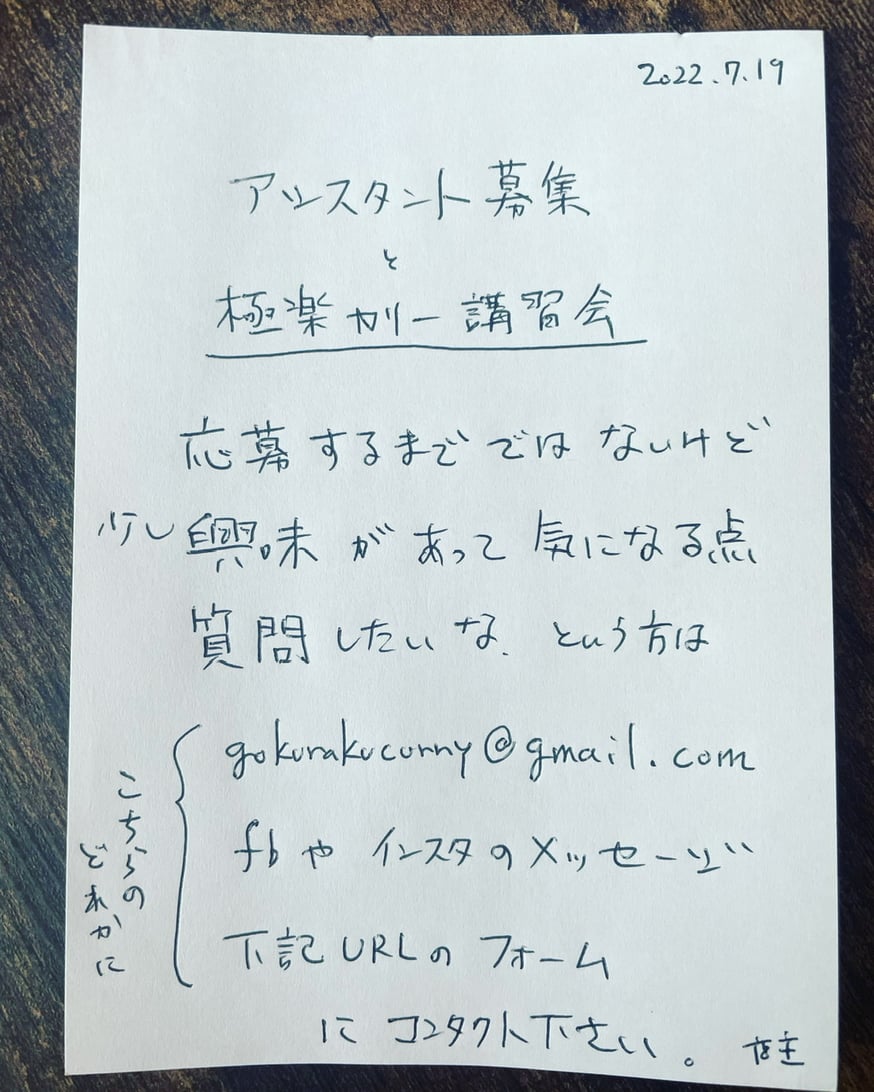 2022.7.19
アシスタント募集
と
極楽カリー講習会
応募するまでではないけど
少し興味があって気になる点
質問したいな、という方は
こちらの
どれかに
gokurakucurry@gmail.com
fbやインスタのメッセージ
下記URLのフォーム
にコンタクト下さい。
店主